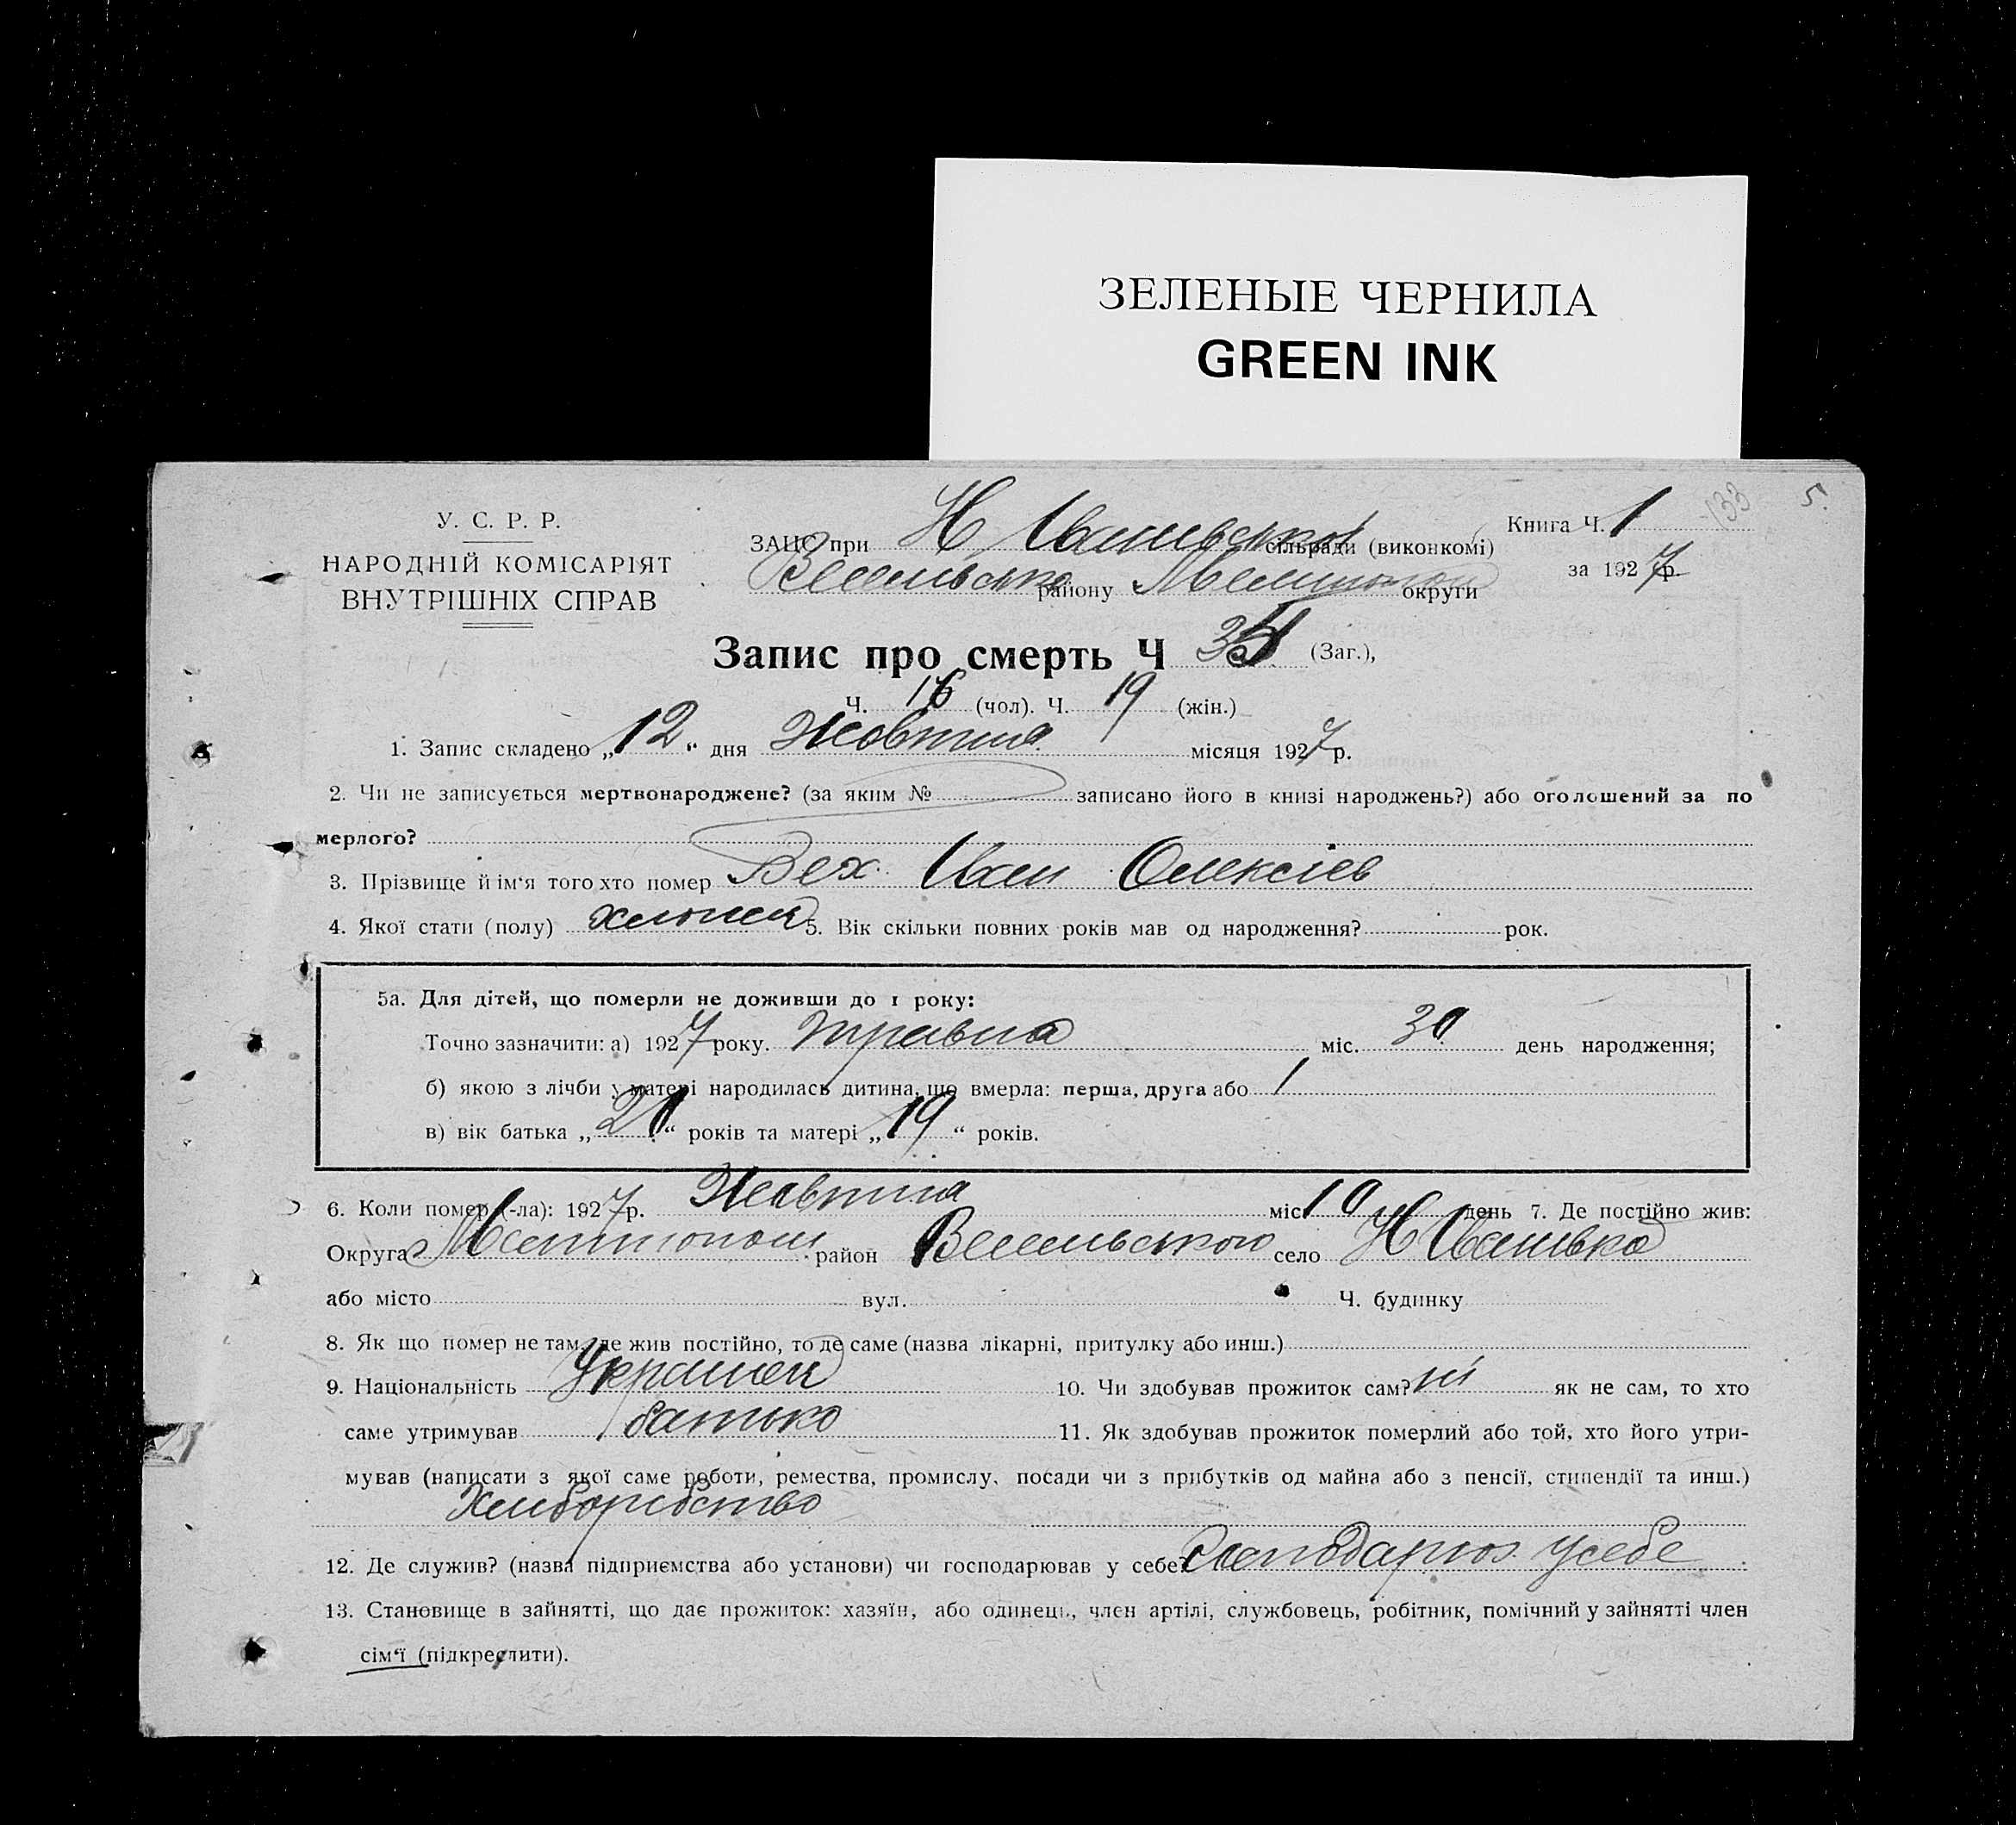 ЗЕЛЕНЫЕ ЧЕРНИЛА
GREEN INK
133 5.
У. С. Р. Р.
НАРОДНІЙ КОМІСАРІЯТ
ВНУТРІШНІХ СПРАВ
ЗАЦС при Н Іванівській сільради (виконкомі)
Книга Ч. 1
Весельсько району Мелитопол округи
за 1927 р.
Запис про смерть Ч 35 (Заг.),
Ч. 16 (чол). Ч. 19 (жін.)
1. Запис складено „12“ дня Жовтня місяця 1927 р.
2. Чи не записується мертвонароджене? (за яким № записано його в книзі народжень?) або оголошений за по
мерлого?
3. Прізвище й ім‘я того хто помер Вех Іван Олексіев
4. Якої стати (полу) хлопець 5. Вік скільки повних років мав од народження? рок.
5а. Для дітей, що померли не доживши до 1 року:
Точно зазначити: а) 1927 року. травня міс. 30 день народження;
б) якою з лічби у матері народилась дитина, що вмерла: перша, друга або 1
в) вік батька „20“ років та матері „19“ років.
6. Коли помер (-ла): 1927 р. Жовтня міс 10 день 7. Де постійно жив:
Округа Мелитопол район Весельського село Н Іванівка
або місто вул. Ч. будинку
8. Як що помер не там, де жив постійно, то де саме (назва лікарні, притулку або инш.)
9. Національність Українец 10. Чи здобував прожиток сам? ні як не сам, то хто
саме утримував батько 11. Як здобував прожиток померлий або той, хто його утри-
мував (написати з якої саме роботи, ремества, промислу, посади чи з прибутків од майна або з пенсії, стипендії та инш.)
Хлиборобство
12. Де служив? (назва підприємства або установи) чи господарював у себе? Господарюв. у себе
13. Становище в зайнятті, що дає прожиток: хазяїн, або одинець, член артілі, службовець, робітник, помічний у зайнятті член
сім‘ї (підкреслити).